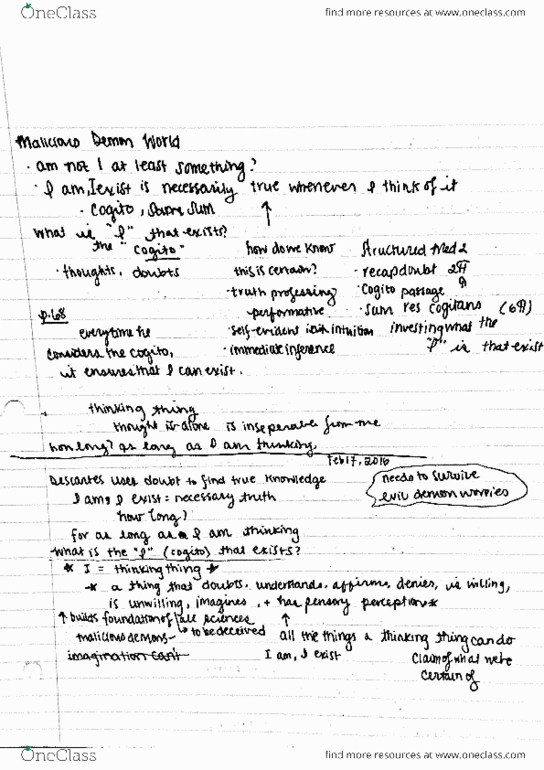 OneClass
find more resources at www.oneclass.com
Malicious Demon World
· am not I at least something?
· I am, I exist is necessarily true whenever I think of it
· Cogito, Sum
What is "I" that exists?
the "cogito"
· thoughts, doubts
how do we know
this is certain?
· truth professing
performative
· self-evident intuition
· immediate inference
Structured Med 2
· recap doubt 2¶
· Cogito passage ¶
· sum res cogitans (6¶)
investing what the
"I" is that exist
p.68
everytime he
considers the cogito,
it ensures that I can exist.
thinking thing
thought is alone is inseperable from me
how long? as long as I am thinking
Feb 17, 2016
Descartes uses doubt to find true knowledge
I am, I exist = necessary truth
how long?
for as long as I am thinking
needs to survive
evil demon worries
What is the "I" (cogito) that exists?
* I = thinking thing *
* a thing that doubts, understands, affirms, denies, is willing,
is unwilling, imagines, + has sensory perception *
↑ builds foundation of all sciences
malicious demons → to be deceived
imagination can't
↑
all the things a thinking thing can do
I am, I exist
claim of what we're
certain of
OneClass
find more resources at www.oneclass.com